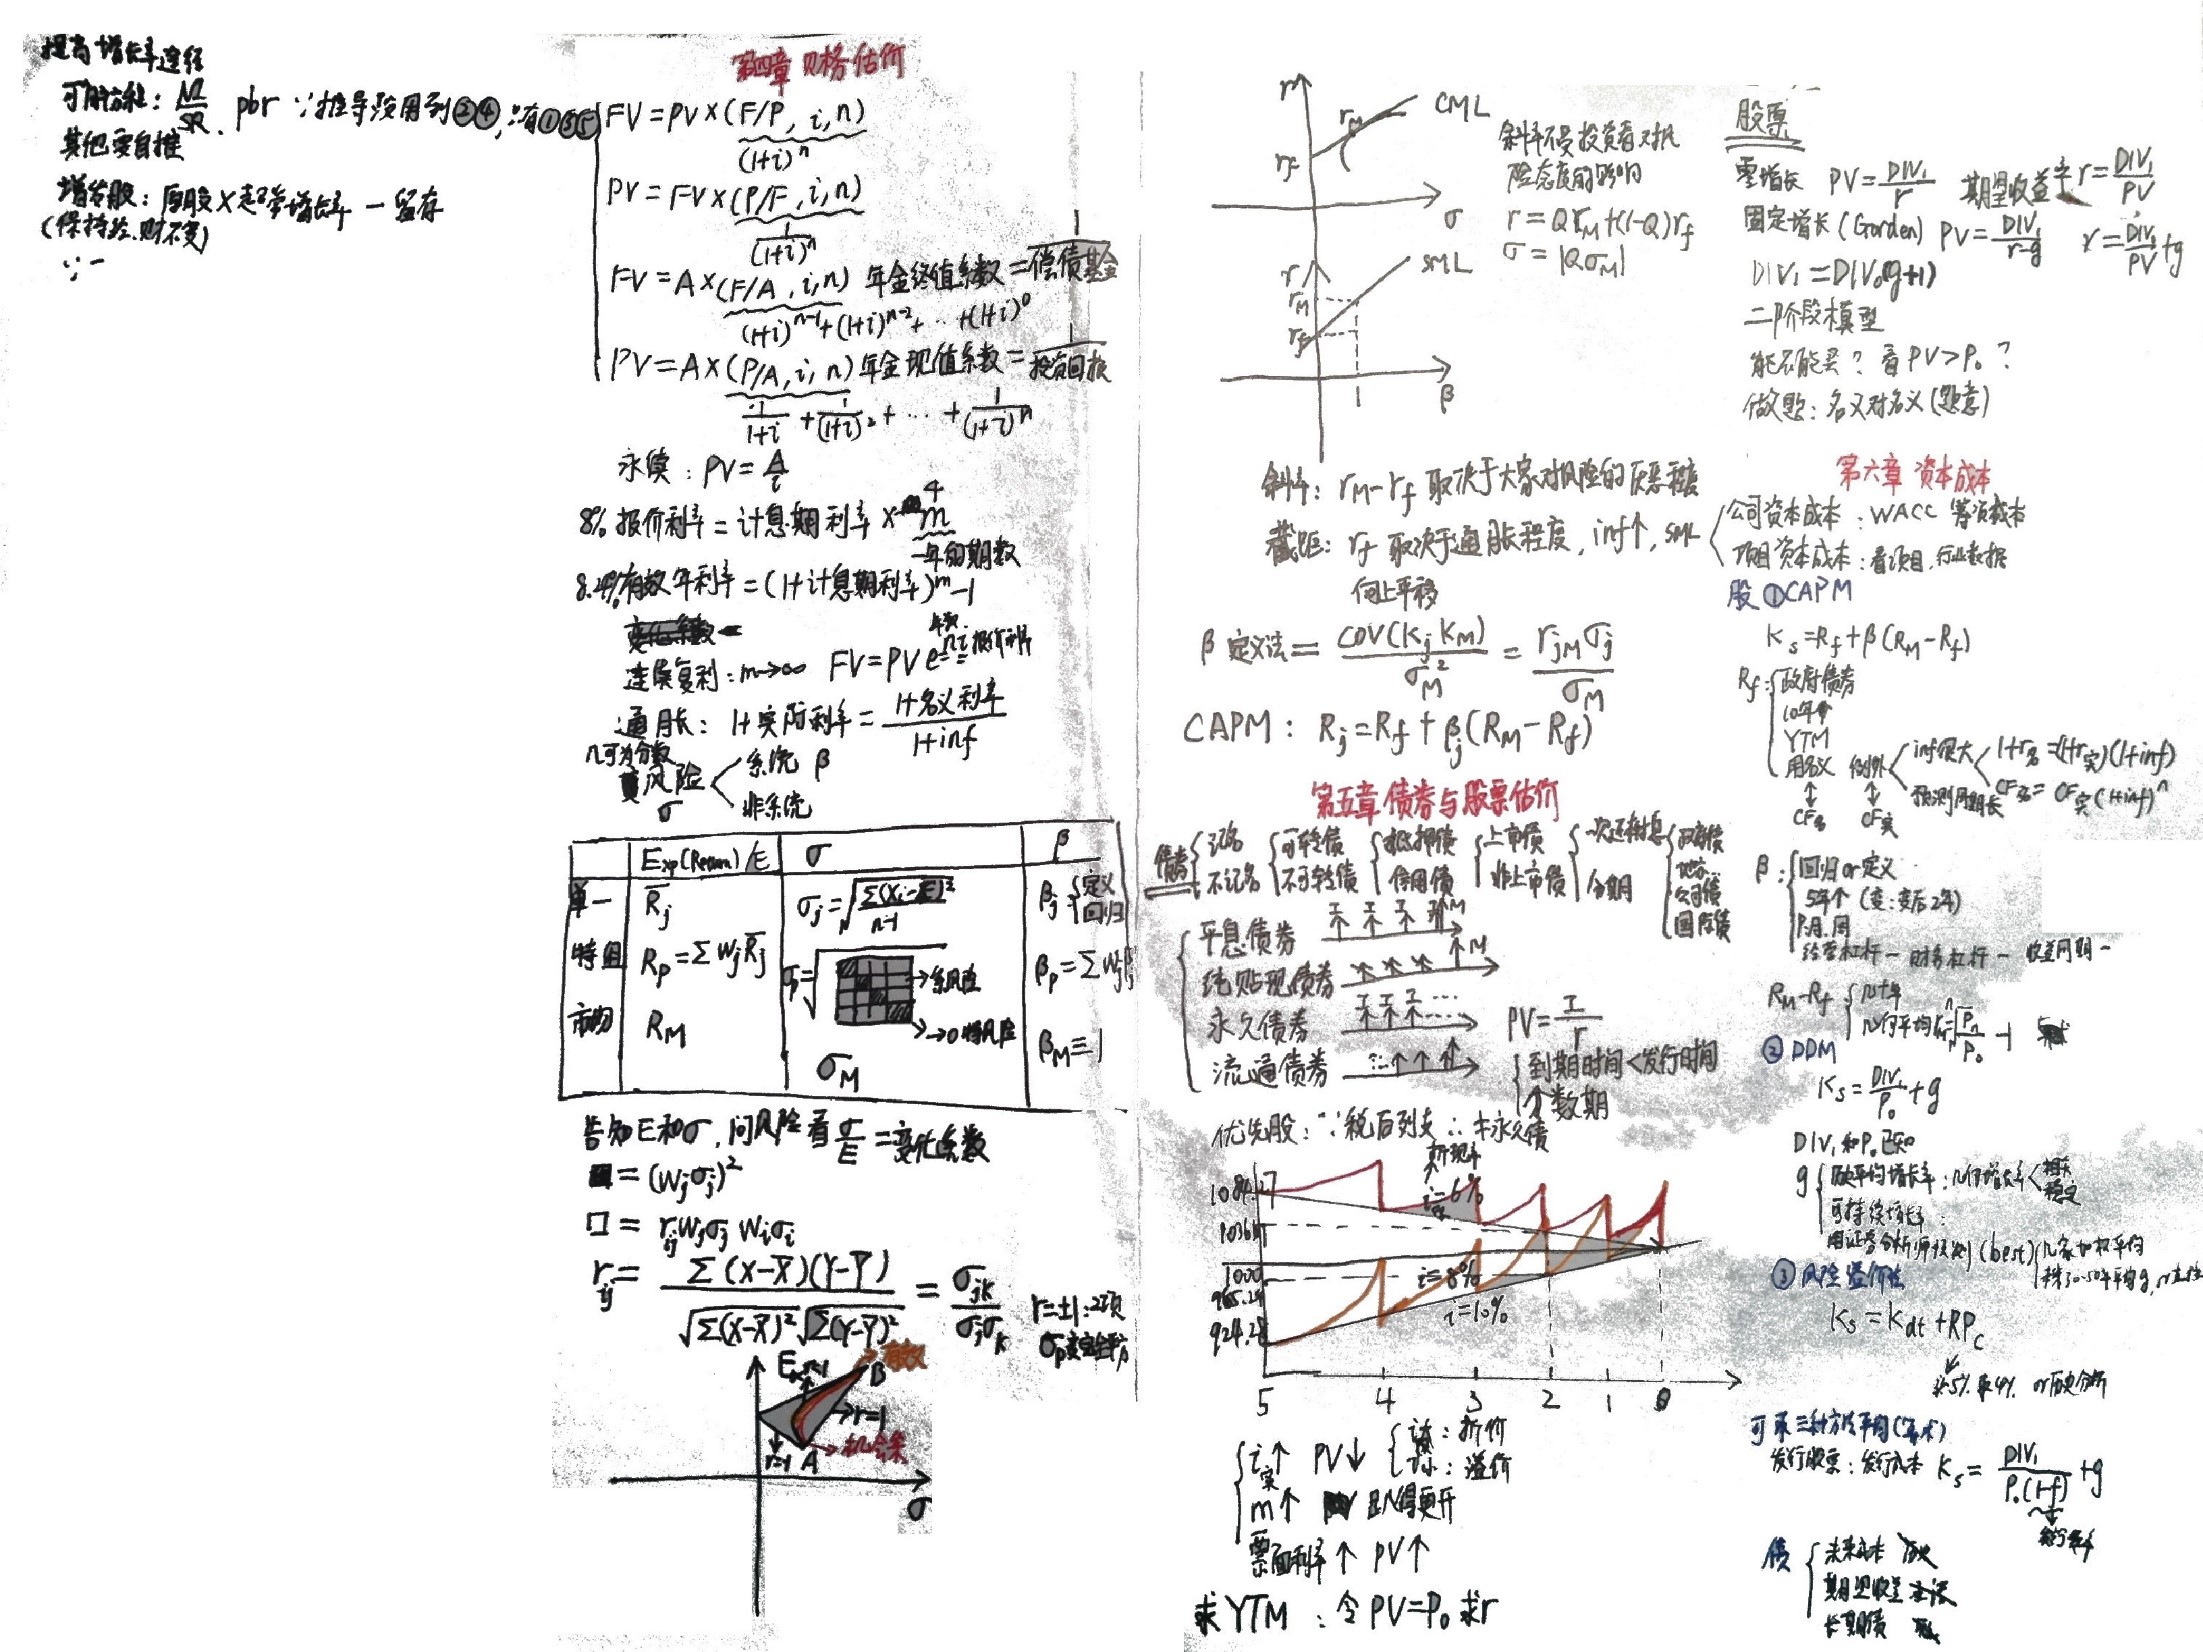 提高增长率途径
可用方程: M/SR. pbr ∵推导没用到②④, ∴有①③⑤
其他要自推
增发股: 原股×超常增长率 - 留存
(保持经.财不变)
第四章 价格估价
FV = PV × (F/P, i, n)
(1+i)^n
PV = FV × (P/F, i, n)
1/(1+i)^n
FV = A × (F/A, i, n) 年金终值系数 = 1/偿债基金
(1+i)^{n-1} + (1+i)^{n-2} + … + (1+i)^0
PV = A × (P/A, i, n) 年金现值系数 = 1/投资回收
1/(1+i) + 1/(1+i)^2 + … + 1/(1+i)^n
永续: PV = A/i
8% 报价利率 = 计息期利率 × m
4
一年的期数
8.24% 有效年利率 = (1+计息期利率)^m - 1
连续复利: m→∞ FV = PV e
报价利率
通胀: 1+实际利率 = (1+名义利率)/(1+inf)
n可为分数
风险 系统 β
σ 非系统
Exp(Return)/E σ β
单一 R̄j σj = √(Σ(Xi-E)²/(n-1)) βj: 定义 回归
特组 Rp = Σ Wj R̄j σp = √ →系风险 →0 特风险 βp = Σ Wj βj
市场 RM σM βM ≡ 1
告知E和σ, 问风险看 σ/E = 变化系数
■ = (Wjσj)²
□ = rij Wjσj Wiσi
rij = Σ(X-X̄)(Y-Ȳ) / √Σ(X-X̄)² √Σ(Y-Ȳ)² = σjk/σjσk
r=±1: 2项
E r=-1 有效
B
r=1
机会集
A
σ
r CML
rM
rf
σ
斜率不受投资者对风
险态度的影响
r = QrM + (1-Q)rf
σ = |QσM|
r SML
rM
rf
1 β
斜率: rM-rf 取决于大家对风险的厌恶程度
截距: rf 取决于通胀程度, inf↑, SML
向上平移
β 定义法 = COV(Kj KM)/σM² = rjM σj/σM
CAPM: Rj = Rf + βj(RM - Rf)
第五章 债券与股票估价
债券 记名 不记名 可转债 不可转债 抵押债 信用债 上市债 非上市债 一次还本付息 分期 政府债 地方 公司债 国际债
平息债券 I I I I M
纯贴现债券 M
永久债券 I I I … PV = I/r
流通债券 到期时间<发行时间
数期
优先股: ∵税后列支 ∴ ≠永久债
折现率
1084.27 i=6%
1036.7
1000 i=8%
965.24
924.28 i=10%
5 4 3 2 1 0
i实↑ PV↓ 折价 溢价
m↑
票面利率↑ PV↑
求YTM: 令PV=P₀ 求r
股票
零增长 PV = DIV₁/r 期望收益率 r = DIV₁/PV
固定增长 (Gorden) PV = DIV₁/(r-g) r = DIV₁/PV + g
DIV₁ = DIV₀(g+1)
二阶段模型
能不能买? 看PV>P₀?
做题: 名义对名义(题意)
第六章 资本成本
公司资本成本: WACC 筹资成本
项目资本成本: 看项目, 行业数据
股 ①CAPM
Ks = Rf + β(RM - Rf)
Rf: 政府债券
10年
YTM
用名义 例外 inf很大 1+r名 = (1+r实)(1+inf)
预测周期长 CF名 = CF实(1+inf)^n
CF名 CF实
β: 回归or定义
5年 (变: 变后2年)
月.周
经营杠杆 - 财务杠杆 - 收益周期 -
RM-Rf 几十年
几何平均
②DDM
Ks = DIV₁/P₀ + g
DIV₁和P₀已知
g 历史平均增长率: 几何增长率
可持续增长率:
用证券分析师预测 (best) 几家加权平均
③风险溢价法
Ks = Kdt + RPc
or历史分析
可采三种方法平均
发行股票: 发行成本 Ks = DIV₁/P₀(1-f) + g
债 未来成本
期望收益
长期债